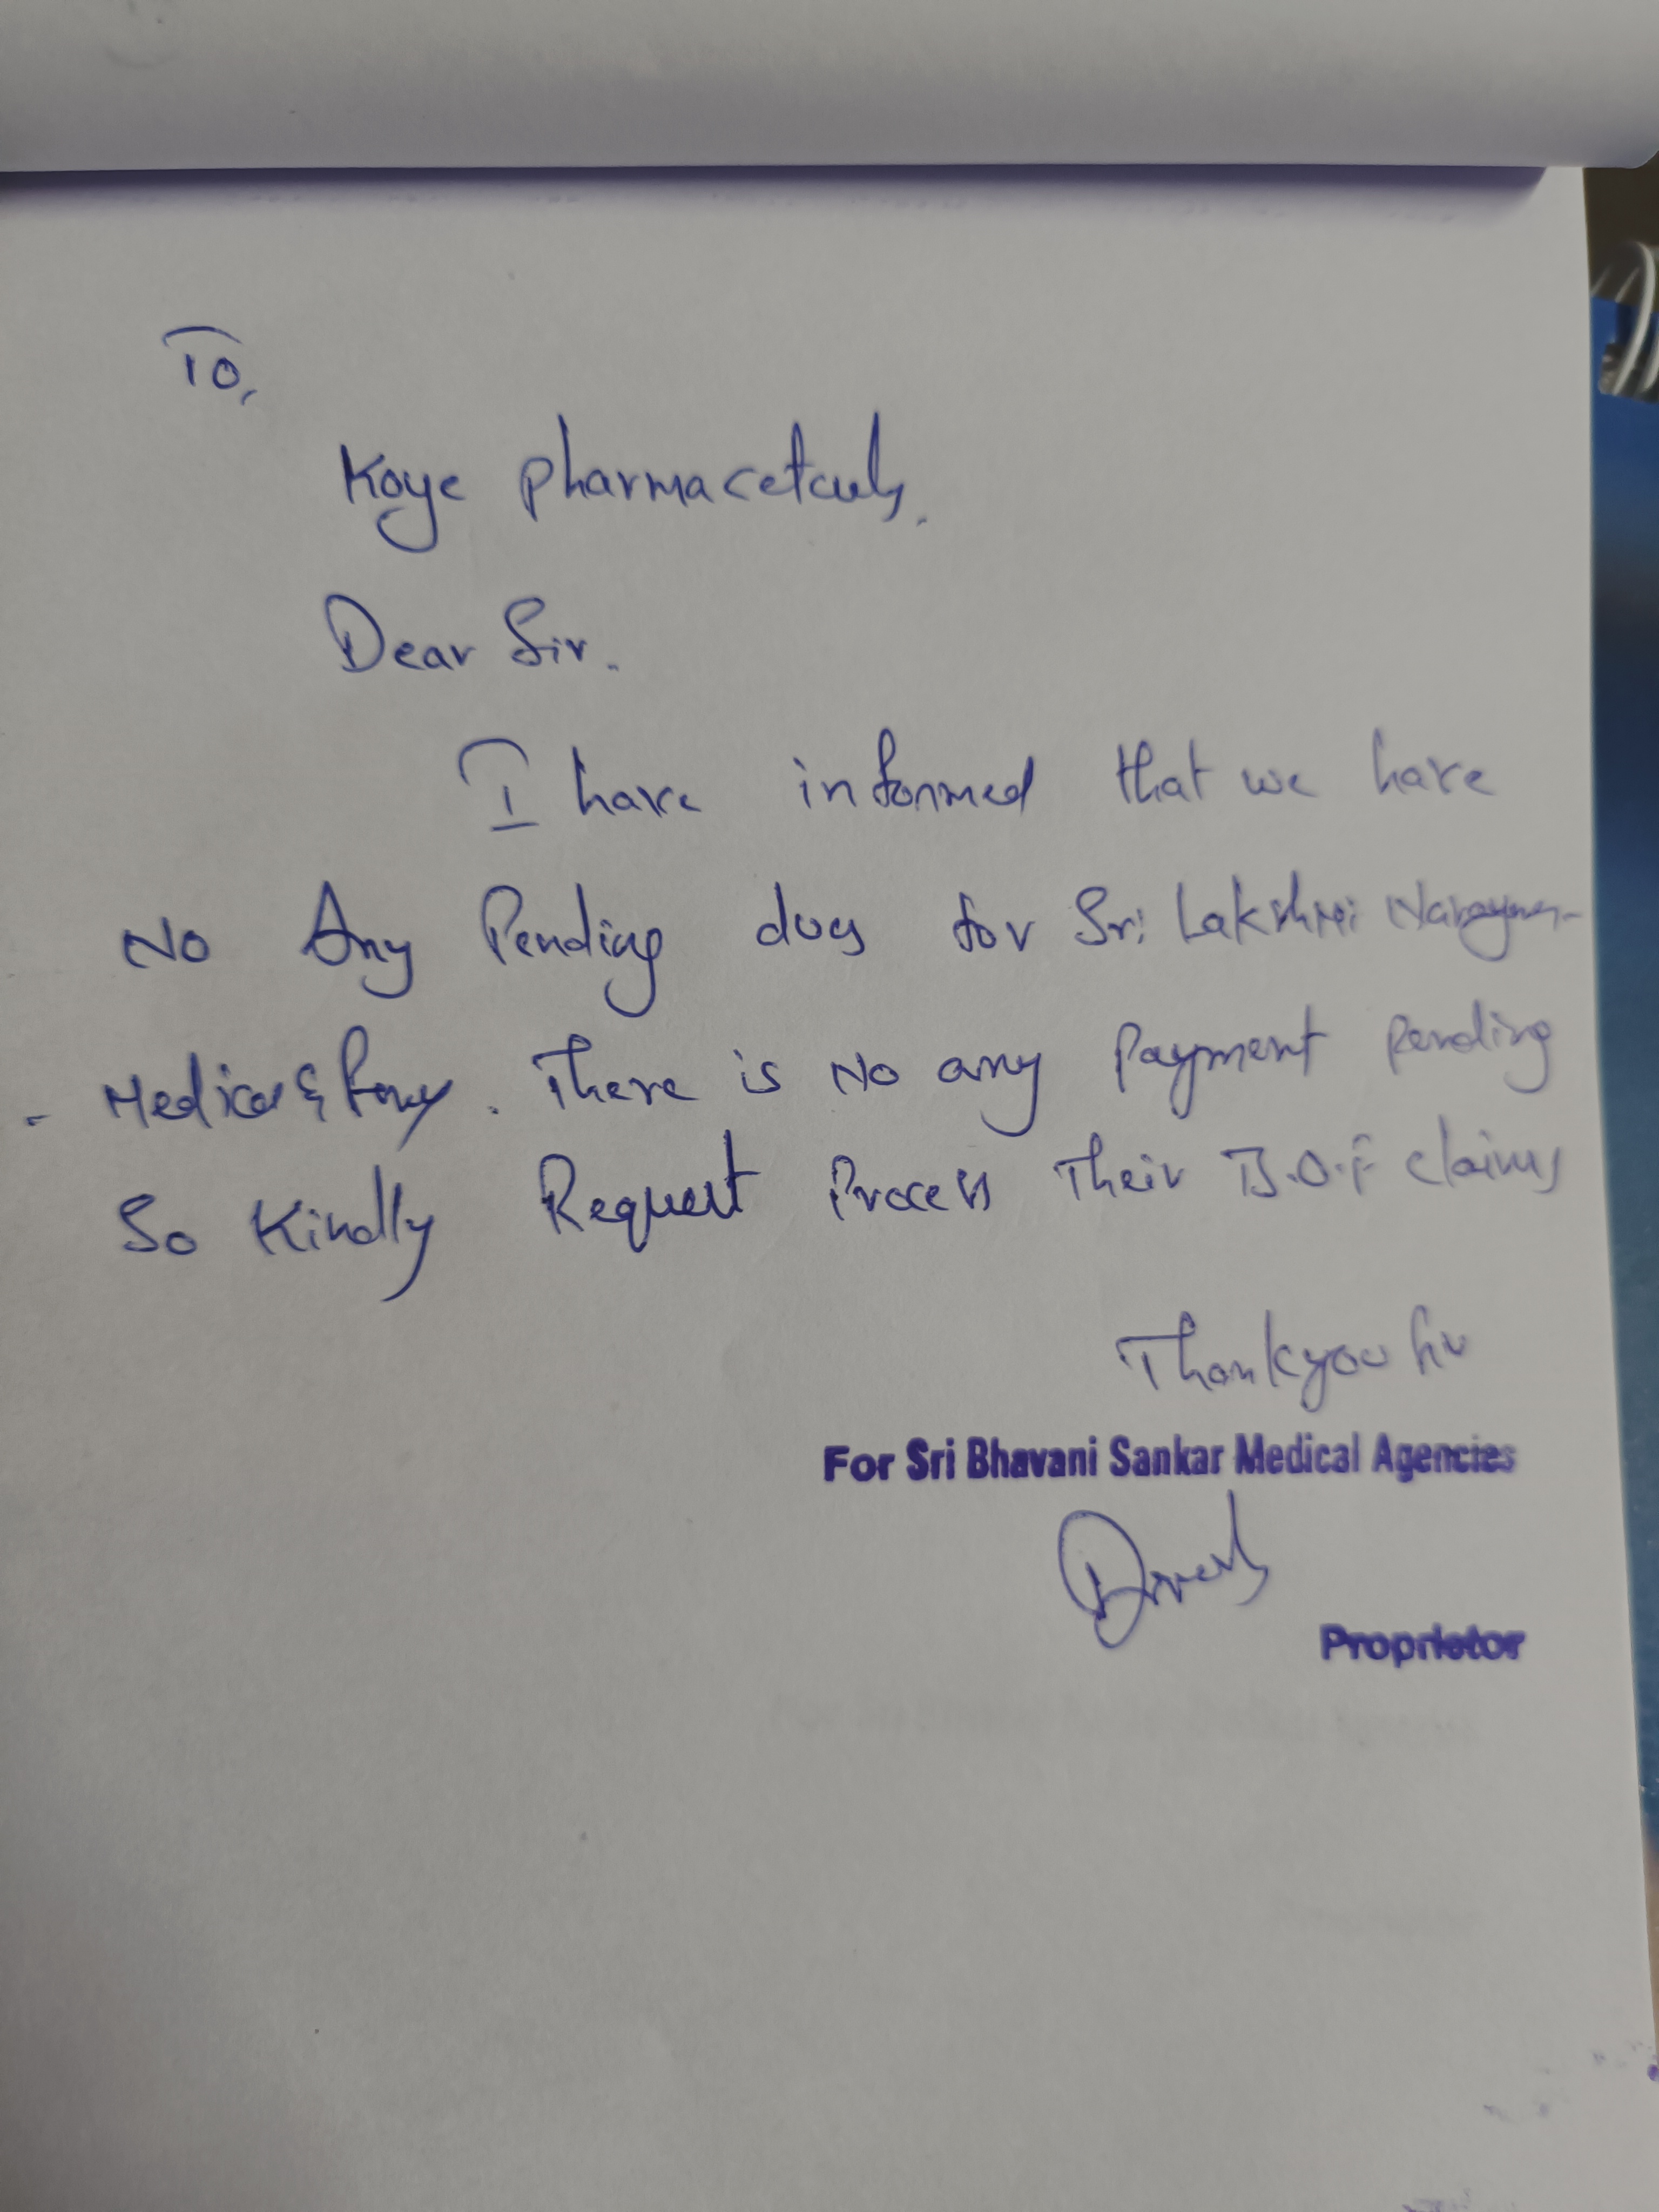 To,
Koye pharmacetculs.
Dear Sir.
I have informed that we have
No Any Pending dues for Sri Lakshmi Narayana
Medical & . There is No any Payment Pending
So Kindly Request Process Their B.O.F claims
Thankyou Sir
For Sri Bhavani Sankar Medical Agencies
Proprietor